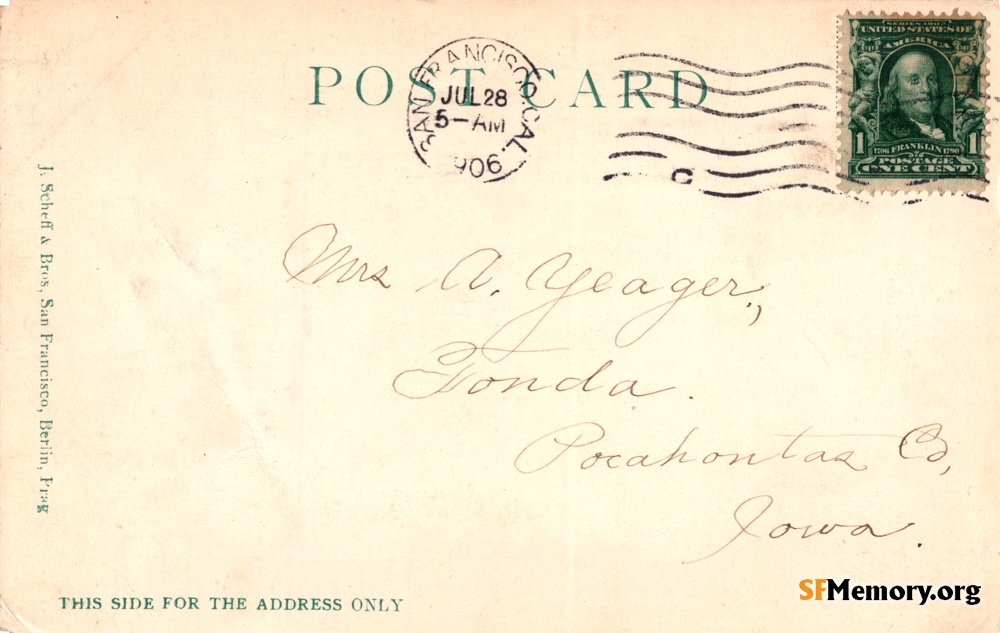 POST CARD
SAN FRANCISCO, CAL.
JUL 28
5 – AM
1906
C
SERIES 1902
UNITED STATES OF
AMERICA
1706 FRANKLIN 1790
1 POSTAGE 1
ONE CENT
J. Scheff & Bros, San Francisco, Berlin, Prag
Mrs A. Yeager,
Fonda.
Pocahontas Co,
Iowa.
THIS SIDE FOR THE ADDRESS ONLY
SFMemory.org